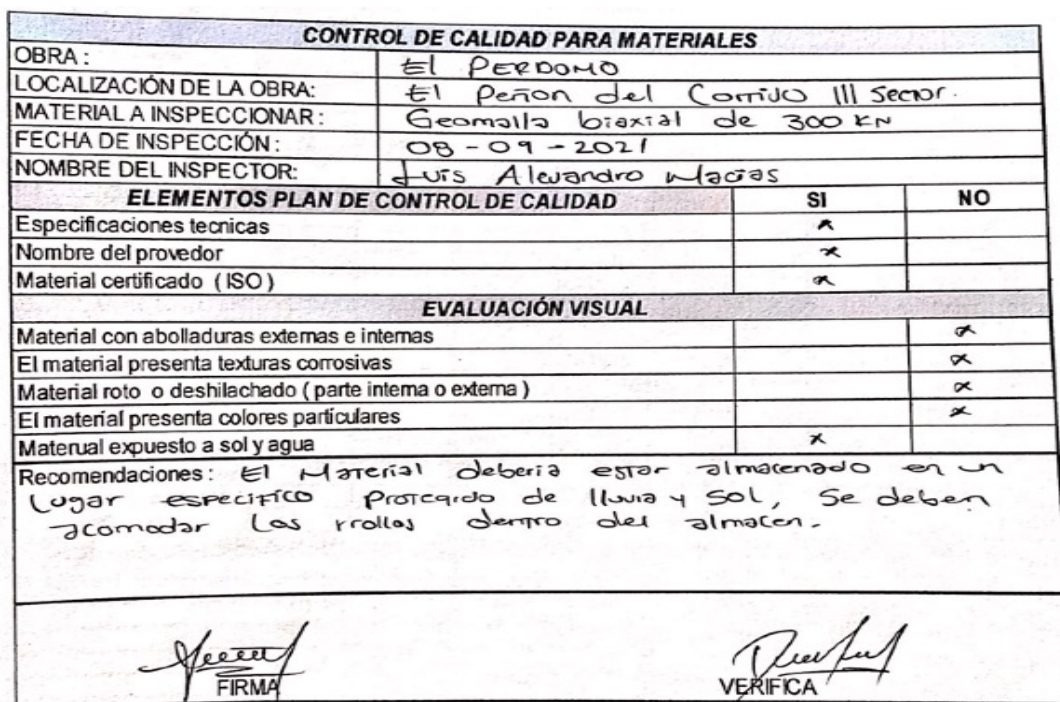 CONTROL DE CALIDAD PARA MATERIALES
OBRA : El PERDOMO
LOCALIZACIÓN DE LA OBRA: El Peñon del Cortijo III Sector.
MATERIAL A INSPECCIONAR : Geomalla biaxial de 300 KN
FECHA DE INSPECCIÓN : 08-09-2021
NOMBRE DEL INSPECTOR: Luis Alejandro Macias
ELEMENTOS PLAN DE CONTROL DE CALIDAD SI NO
Especificaciones tecnicas x
Nombre del provedor x
Material certificado (ISO) x
EVALUACIÓN VISUAL
Material con abolladuras externas e internas x
El material presenta texturas corrosivas x
Material roto o deshilachado ( parte interna o externa ) x
El material presenta colores particulares x
Materual expuesto a sol y agua x
Recomendaciones: El Material deberia estar almacenado en un
Lugar especifico Protegido de lluvia y Sol, Se deben
acomodar Los rrollos dentro del almacen.
FIRMA VERIFICA